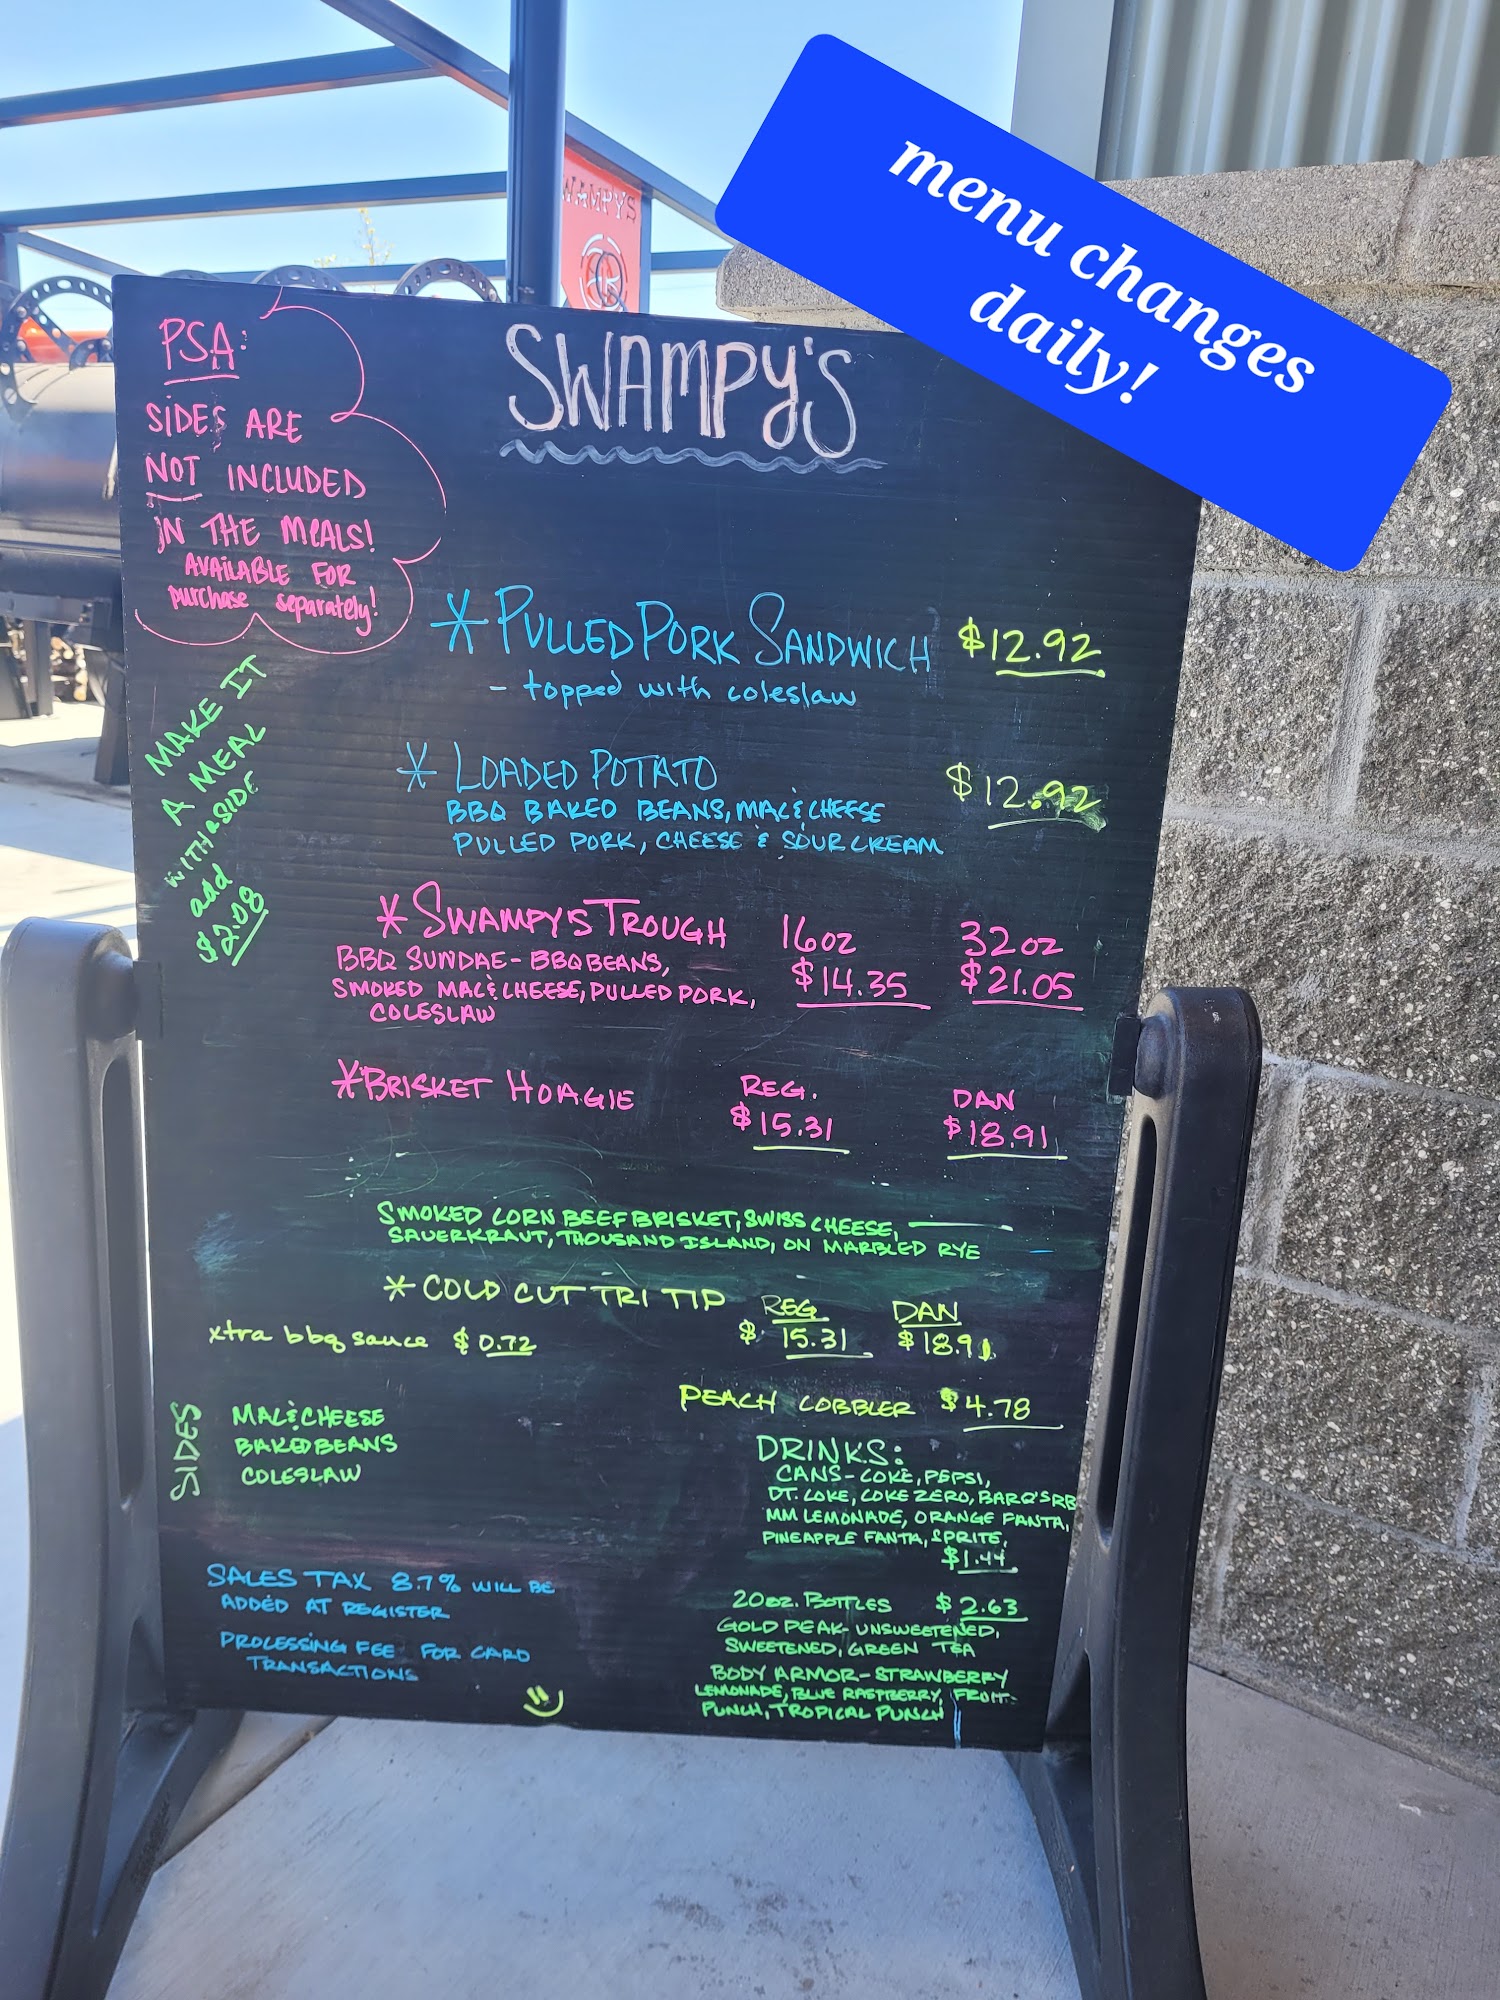 menu changes
daily!
WAMPYS
PSA:
SIDES ARE
NOT INCLUDED
IN THE MEALS!
AVAILABLE FOR
purchase separately!
SWAMPY'S
* PULLED PORK SANDWICH $12.92
- topped with coleslaw
MAKE IT
A MEAL
WITH a SIDE
add
$2.08
* LOADED POTATO $12.92
BBQ BAKED BEANS, MAC & CHEESE
PULLED PORK, CHEESE & SOUR CREAM
* SWAMPY'S TROUGH 16oz 32oz
BBQ SUNDAE - BBQ BEANS, $14.35 $21.05
SMOKED MAC & CHEESE, PULLED PORK,
COLESLAW
* BRISKET HOAGIE REG. DAN
$15.31 $18.91
SMOKED CORN BEEF BRISKET, SWISS CHEESE,
SAUERKRAUT, THOUSAND ISLAND, ON MARBLED RYE
* COLD CUT TRI TIP REG. DAN
$15.31 $18.91
xtra bbq sauce $0.72
PEACH COBBLER $4.78
SIDES
MAC & CHEESE
BAKED BEANS
COLESLAW
DRINKS:
CANS - COKE, PEPSI,
DT. COKE, COKE ZERO, BARQ'S RB
MM LEMONADE, ORANGE FANTA,
PINEAPPLE FANTA, SPRITE,
$1.44
20oz. BOTTLES $2.63
GOLD PEAK - UNSWEETENED,
SWEETENED, GREEN TEA
BODY ARMOR - STRAWBERRY
LEMONADE, BLUE RASPBERRY, FRUIT-
PUNCH, TROPICAL PUNCH
SALES TAX 8.7% WILL BE
ADDED AT REGISTER
PROCESSING FEE FOR CARD
TRANSACTIONS